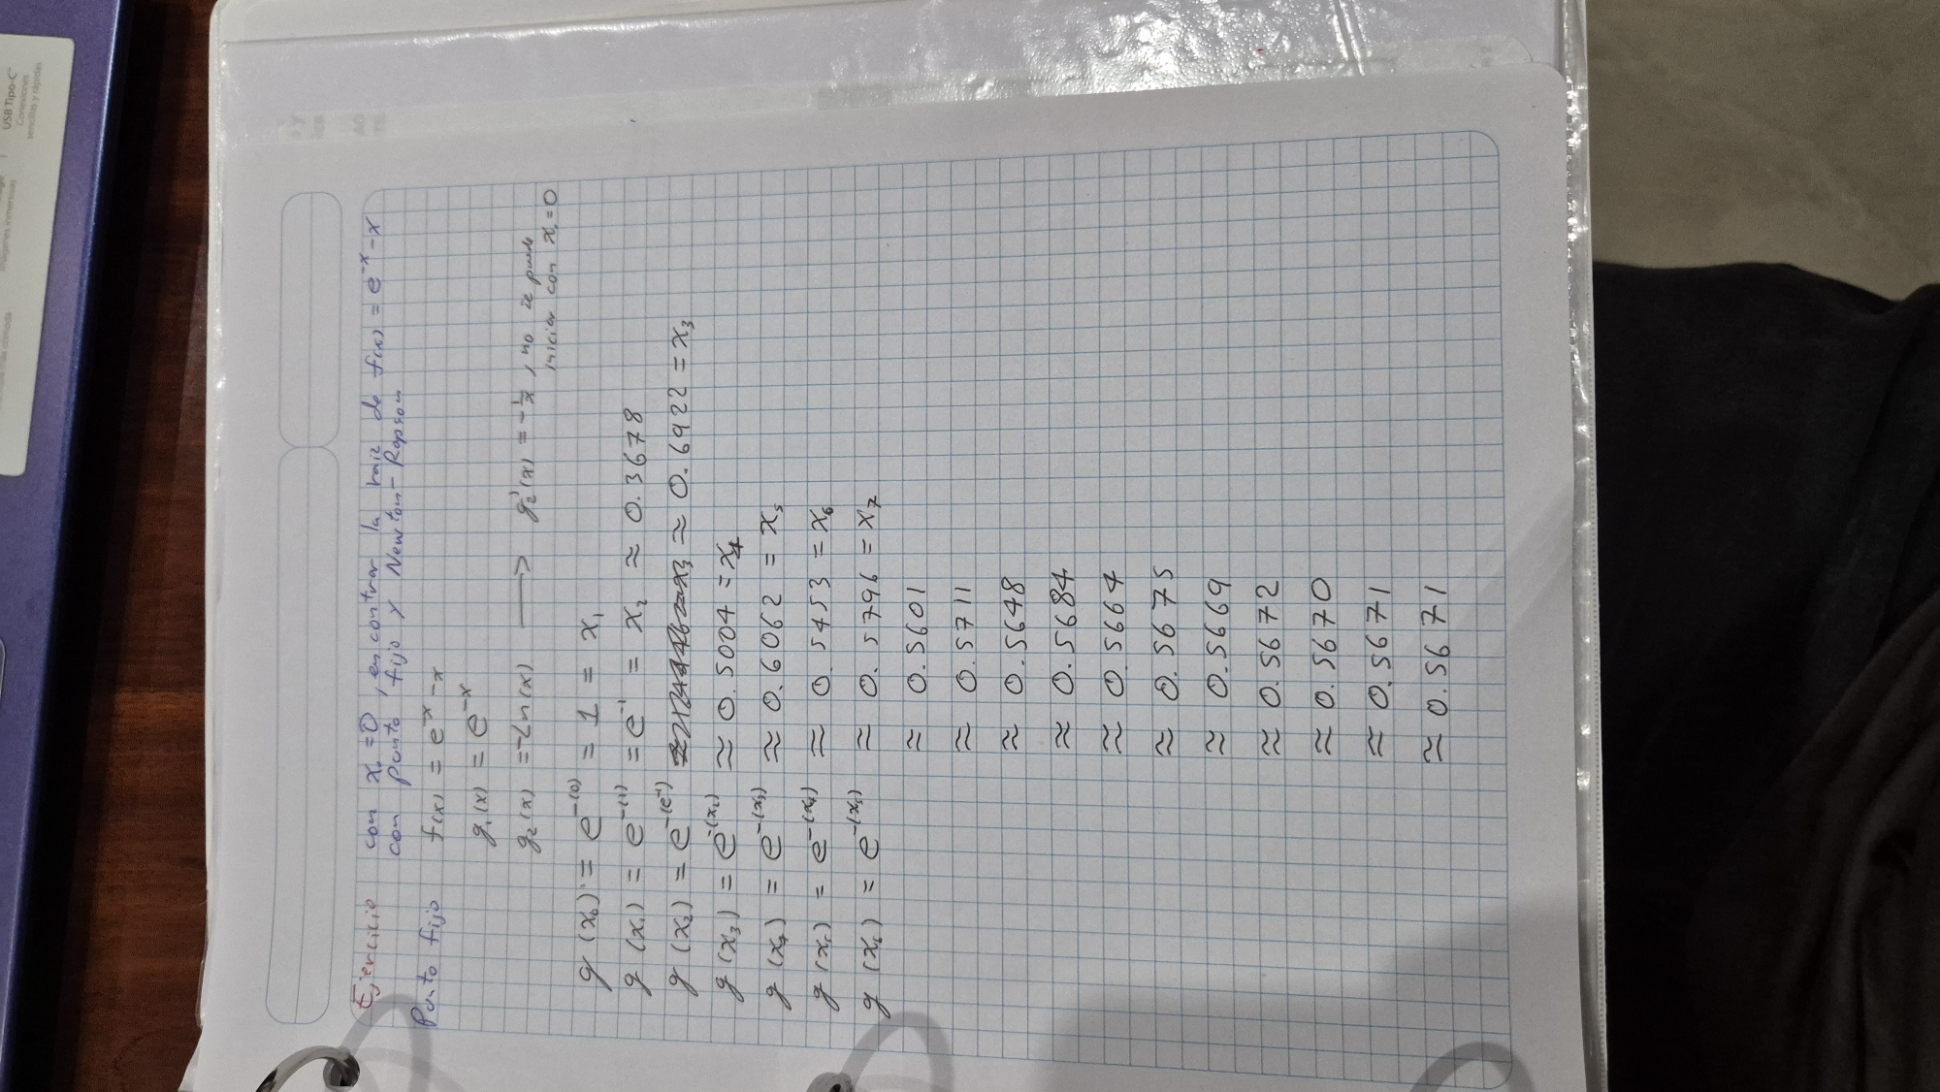 USB Tipo-C
Conexiones
sencillas y rápidas
Ejercicio con x₀=0, encontrar la raiz de f(x) = e⁻ˣ-x
con punto fijo y Newton-Rapson
Punto fijo f(x) = e⁻ˣ-x
g₁(x) = e⁻ˣ
g₂(x) = -Ln(x) → g₂'(x) = -1/x, no se puede
iniciar con x₀=0
g(x₀) = e^-(0) = 1 = x₁
g(x₁) = e^-(1) = e⁻¹ = x₂ ≈ 0.3678
g(x₂) = e^-(e⁻¹) ≈ 0.6922 = x₃
g(x₃) = e^-(x₂) ≈ 0.5004 = x₄
g(x₄) = e^-(x₃) ≈ 0.6062 = x₅
g(x₅) = e^-(x₄) ≈ 0.5453 = x₆
g(x₆) = e^-(x₅) ≈ 0.5796 = x₇
≈ 0.5601
≈ 0.5711
≈ 0.5648
≈ 0.5684
≈ 0.5664
≈ 0.5675
≈ 0.5669
≈ 0.5672
≈ 0.5670
≈ 0.5671
≈ 0.5671